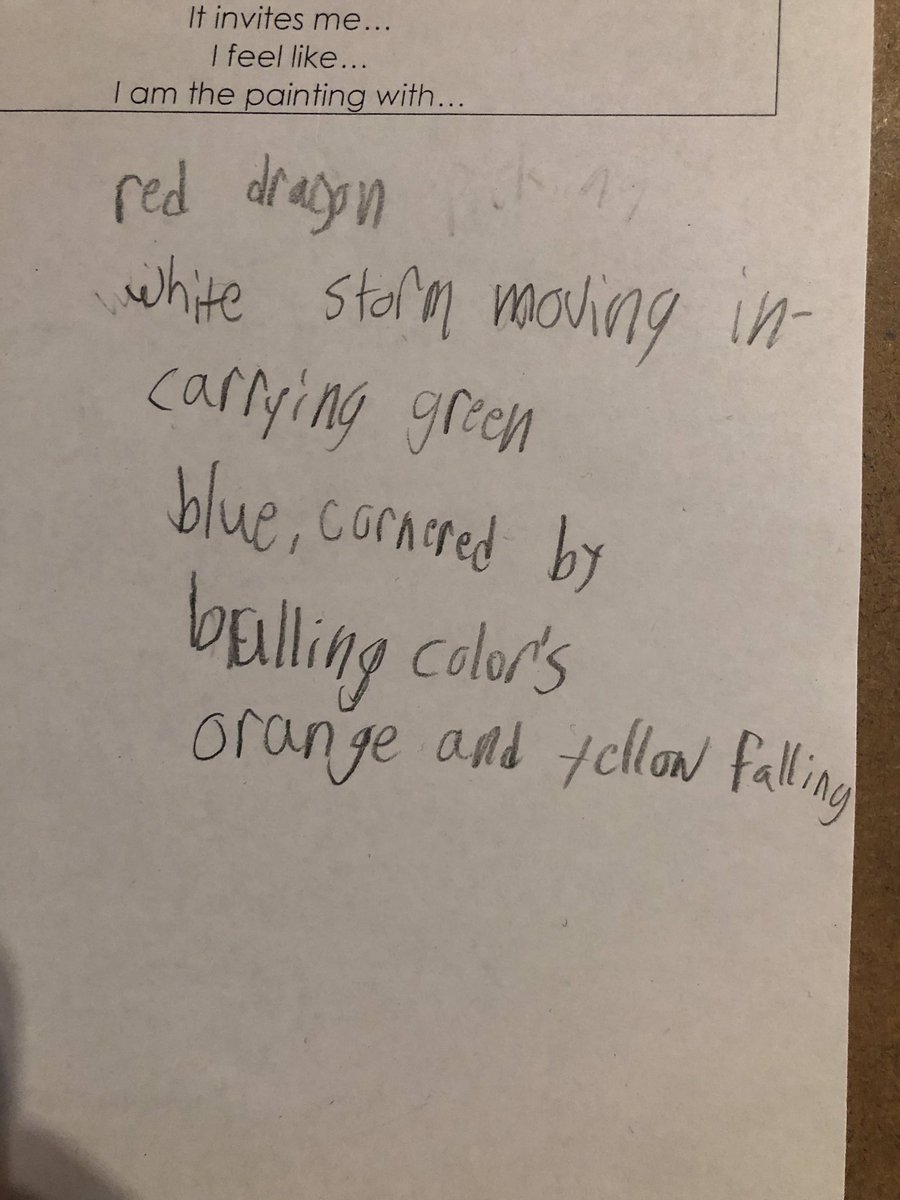 It invites me…
I feel like…
I am the painting with…
red dragon
white storm moving in-
carrying green
blue, cornered by
color's
orange and yellow falling